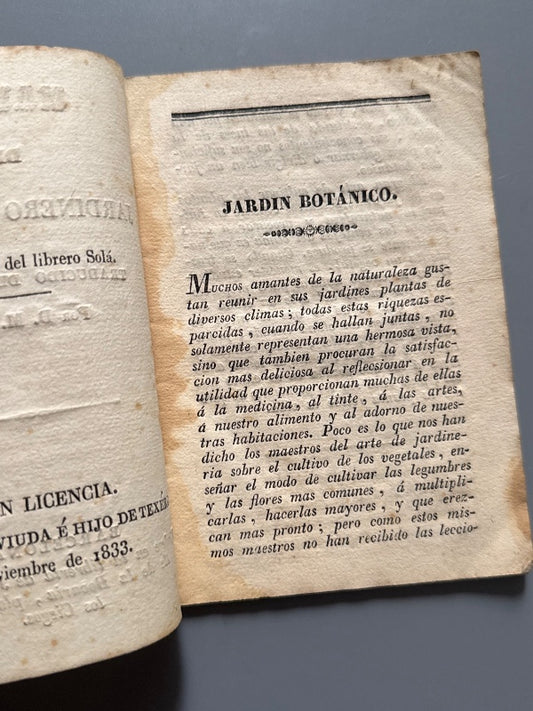 del librero Solá.
N LICENCIA.
VIUDA É HIJO DE TEXÉ
viembre de 1833.
JARDIN BOTÁNICO.
MUCHOS amantes de la naturaleza gus-
tan reunir en sus jardines plantas de
diversos climas; todas estas riquezas es-
parcidas, cuando se hallan juntas, no
solamente representan una hermosa vista,
sino que tambien procuran la satisfac-
cion mas deliciosa al reflecsionar en la
utilidad que proporcionan muchas de ellas
á la medicina, al tinte, á las artes,
á nuestro alimento y al adorno de nues-
tras habitaciones. Poco es lo que nos han
dicho los maestros del arte de jardine-
ria sobre el cultivo de los vegetales, en-
señar el modo de cultivar las legumbres
y las flores mas comunes, á multipli-
carlas, hacerlas mayores, y que crez-
can mas pronto; pero como estos mis-
mos maestros no han recibido las leccio-